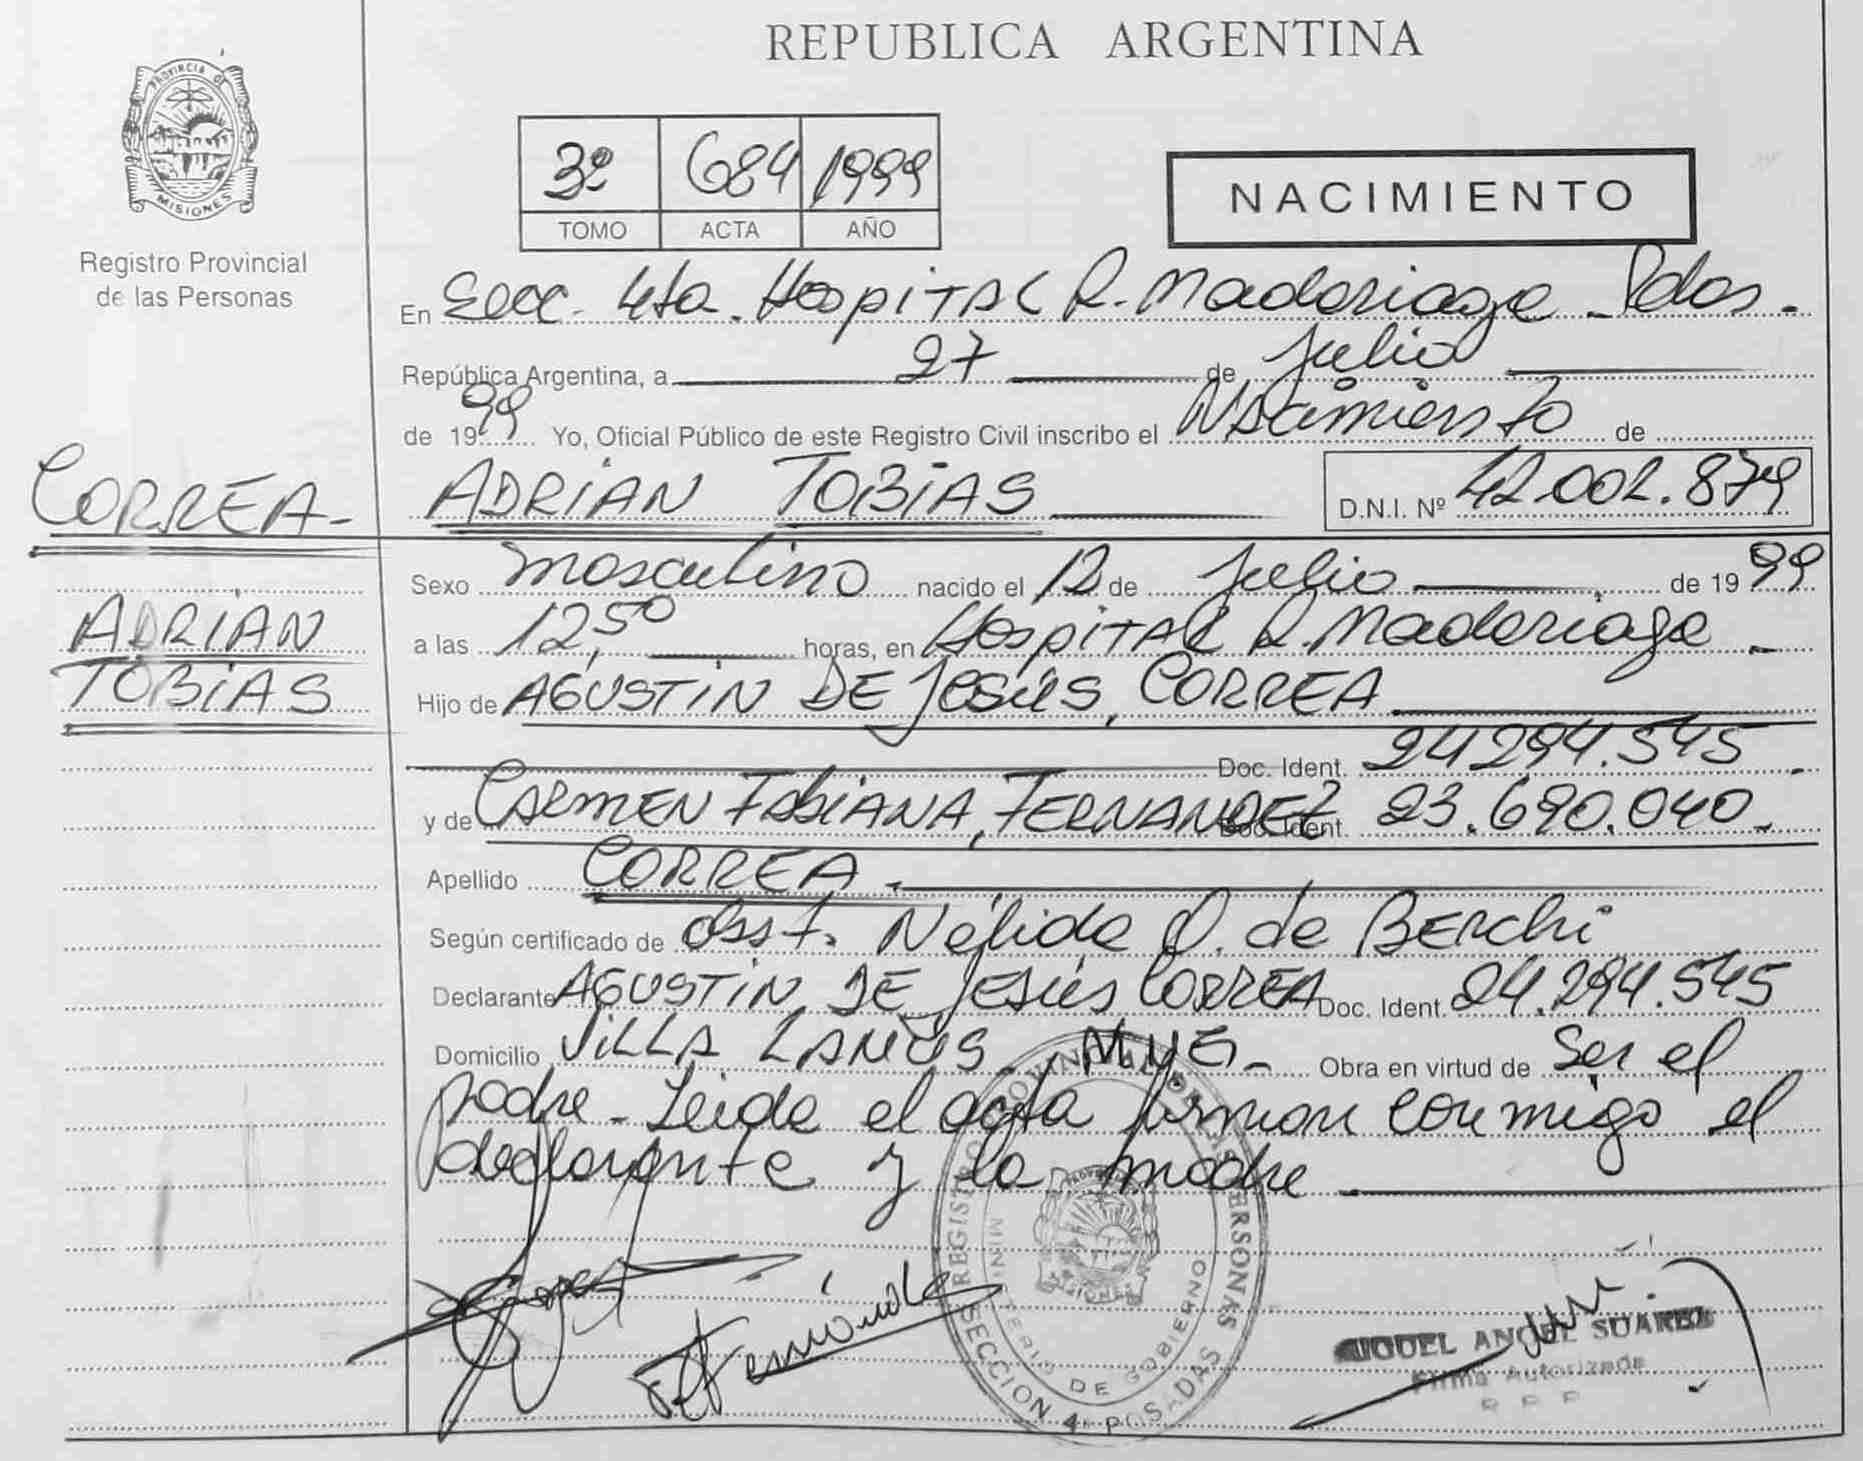 REPUBLICA ARGENTINA
PROVINCIA DE
MISIONES
Registro Provincial
de las Personas
3º 684 1999
TOMO ACTA AÑO
NACIMIENTO
En Secc. 4ta. Hospital R. Madariaga - Pdas.
República Argentina, a 27 de Julio
de 1999 Yo, Oficial Público de este Registro Civil inscribo el Nacimiento de
CORREA- ADRIAN TOBIAS D.N.I. Nº 42.002.879
Sexo masculino nacido el 12 de Julio de 1999
ADRIAN a las 12,50 horas, en Hospital R. Madariaga -
TOBIAS Hijo de AGUSTIN DE JESÚS, CORREA
Doc. Ident. 24294.545
y de CARMEN FABIANA, FERNANDEZ Doc. Ident. 23.690.040.
Apellido CORREA.
Según certificado de Obst. Nélida O. de BERCHI
Declarante AGUSTIN DE JESÚS CORREA Doc. Ident. 24.294.545
Domicilio VILLA LANUS - Obra en virtud de Ser el
padre - Leida el acta firman conmigo el
declarante y la madre
REGISTRO PROVINCIAL DE LAS PERSONAS
MINISTERIO DE GOBIERNO
SECCION 4a POSADAS
MISIONES
F Fernández
MIGUEL ANGEL SUAREZ
Firma Autorizada
R P P